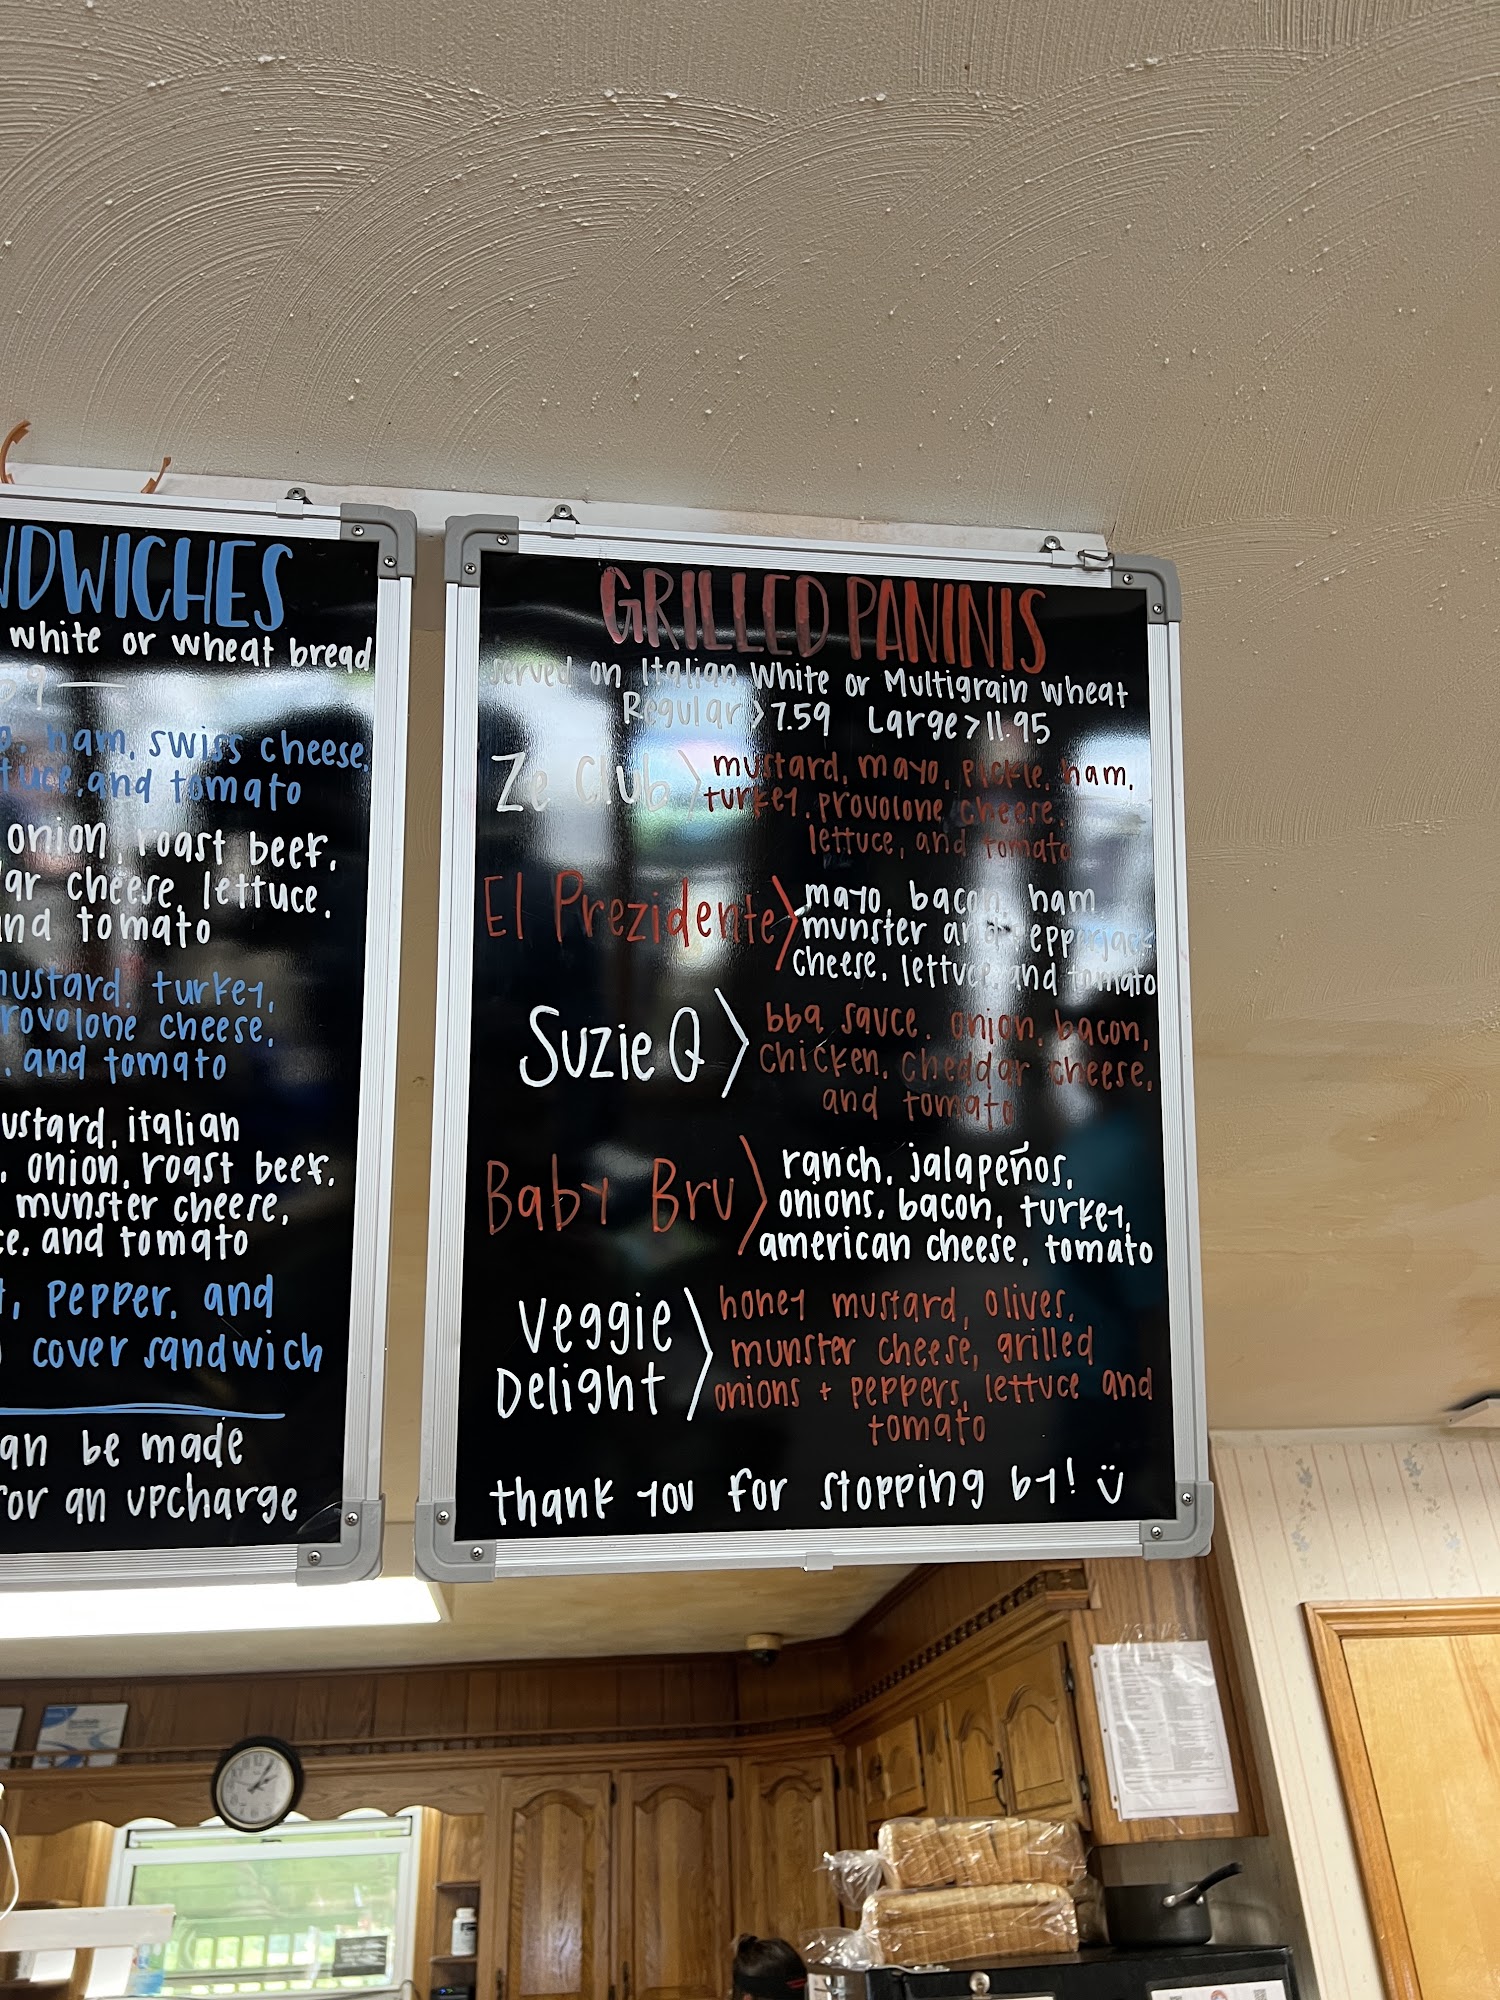 NDWICHES
white or wheat bread
9
ham, swiss cheese,
tuce, and tomato
onion, roast beef,
ar cheese, lettuce,
and tomato
mustard, turkey,
rovolone cheese,
, and tomato
ustard, italian
, onion, roast beef,
munster cheese,
ce, and tomato
t, pepper, and
cover sandwich
an be made
for an upcharge
GRILLED PANINIS
served on Italian White or Multigrain wheat
Regular > 7.59 Large > 11.95
Ze Club > mustard, mayo, pickle, ham,
turkey, provolone cheese,
lettuce, and tomato
El Prezidente > mayo, bacon, ham
munster and pepperjack
cheese, lettuce, and tomato
Suzie Q > bbq sauce, onion, bacon,
chicken, cheddar cheese,
and tomato
Baby Bru > ranch, jalapeños,
onions, bacon, turkey,
american cheese, tomato
Veggie Delight > honey mustard, olives,
munster cheese, grilled
onions + peppers, lettuce and
tomato
thank you for stopping by! ü